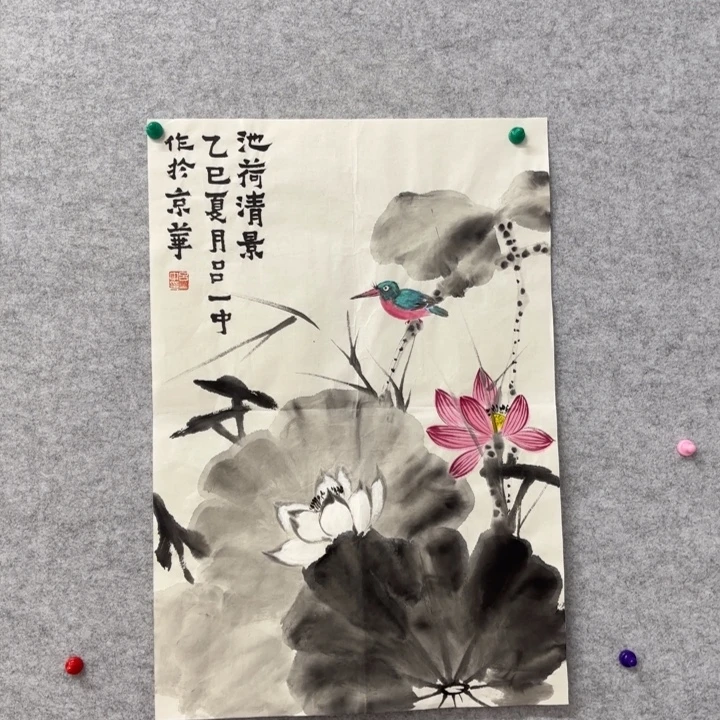 池荷清景
乙巳夏月吕一中
作於京華